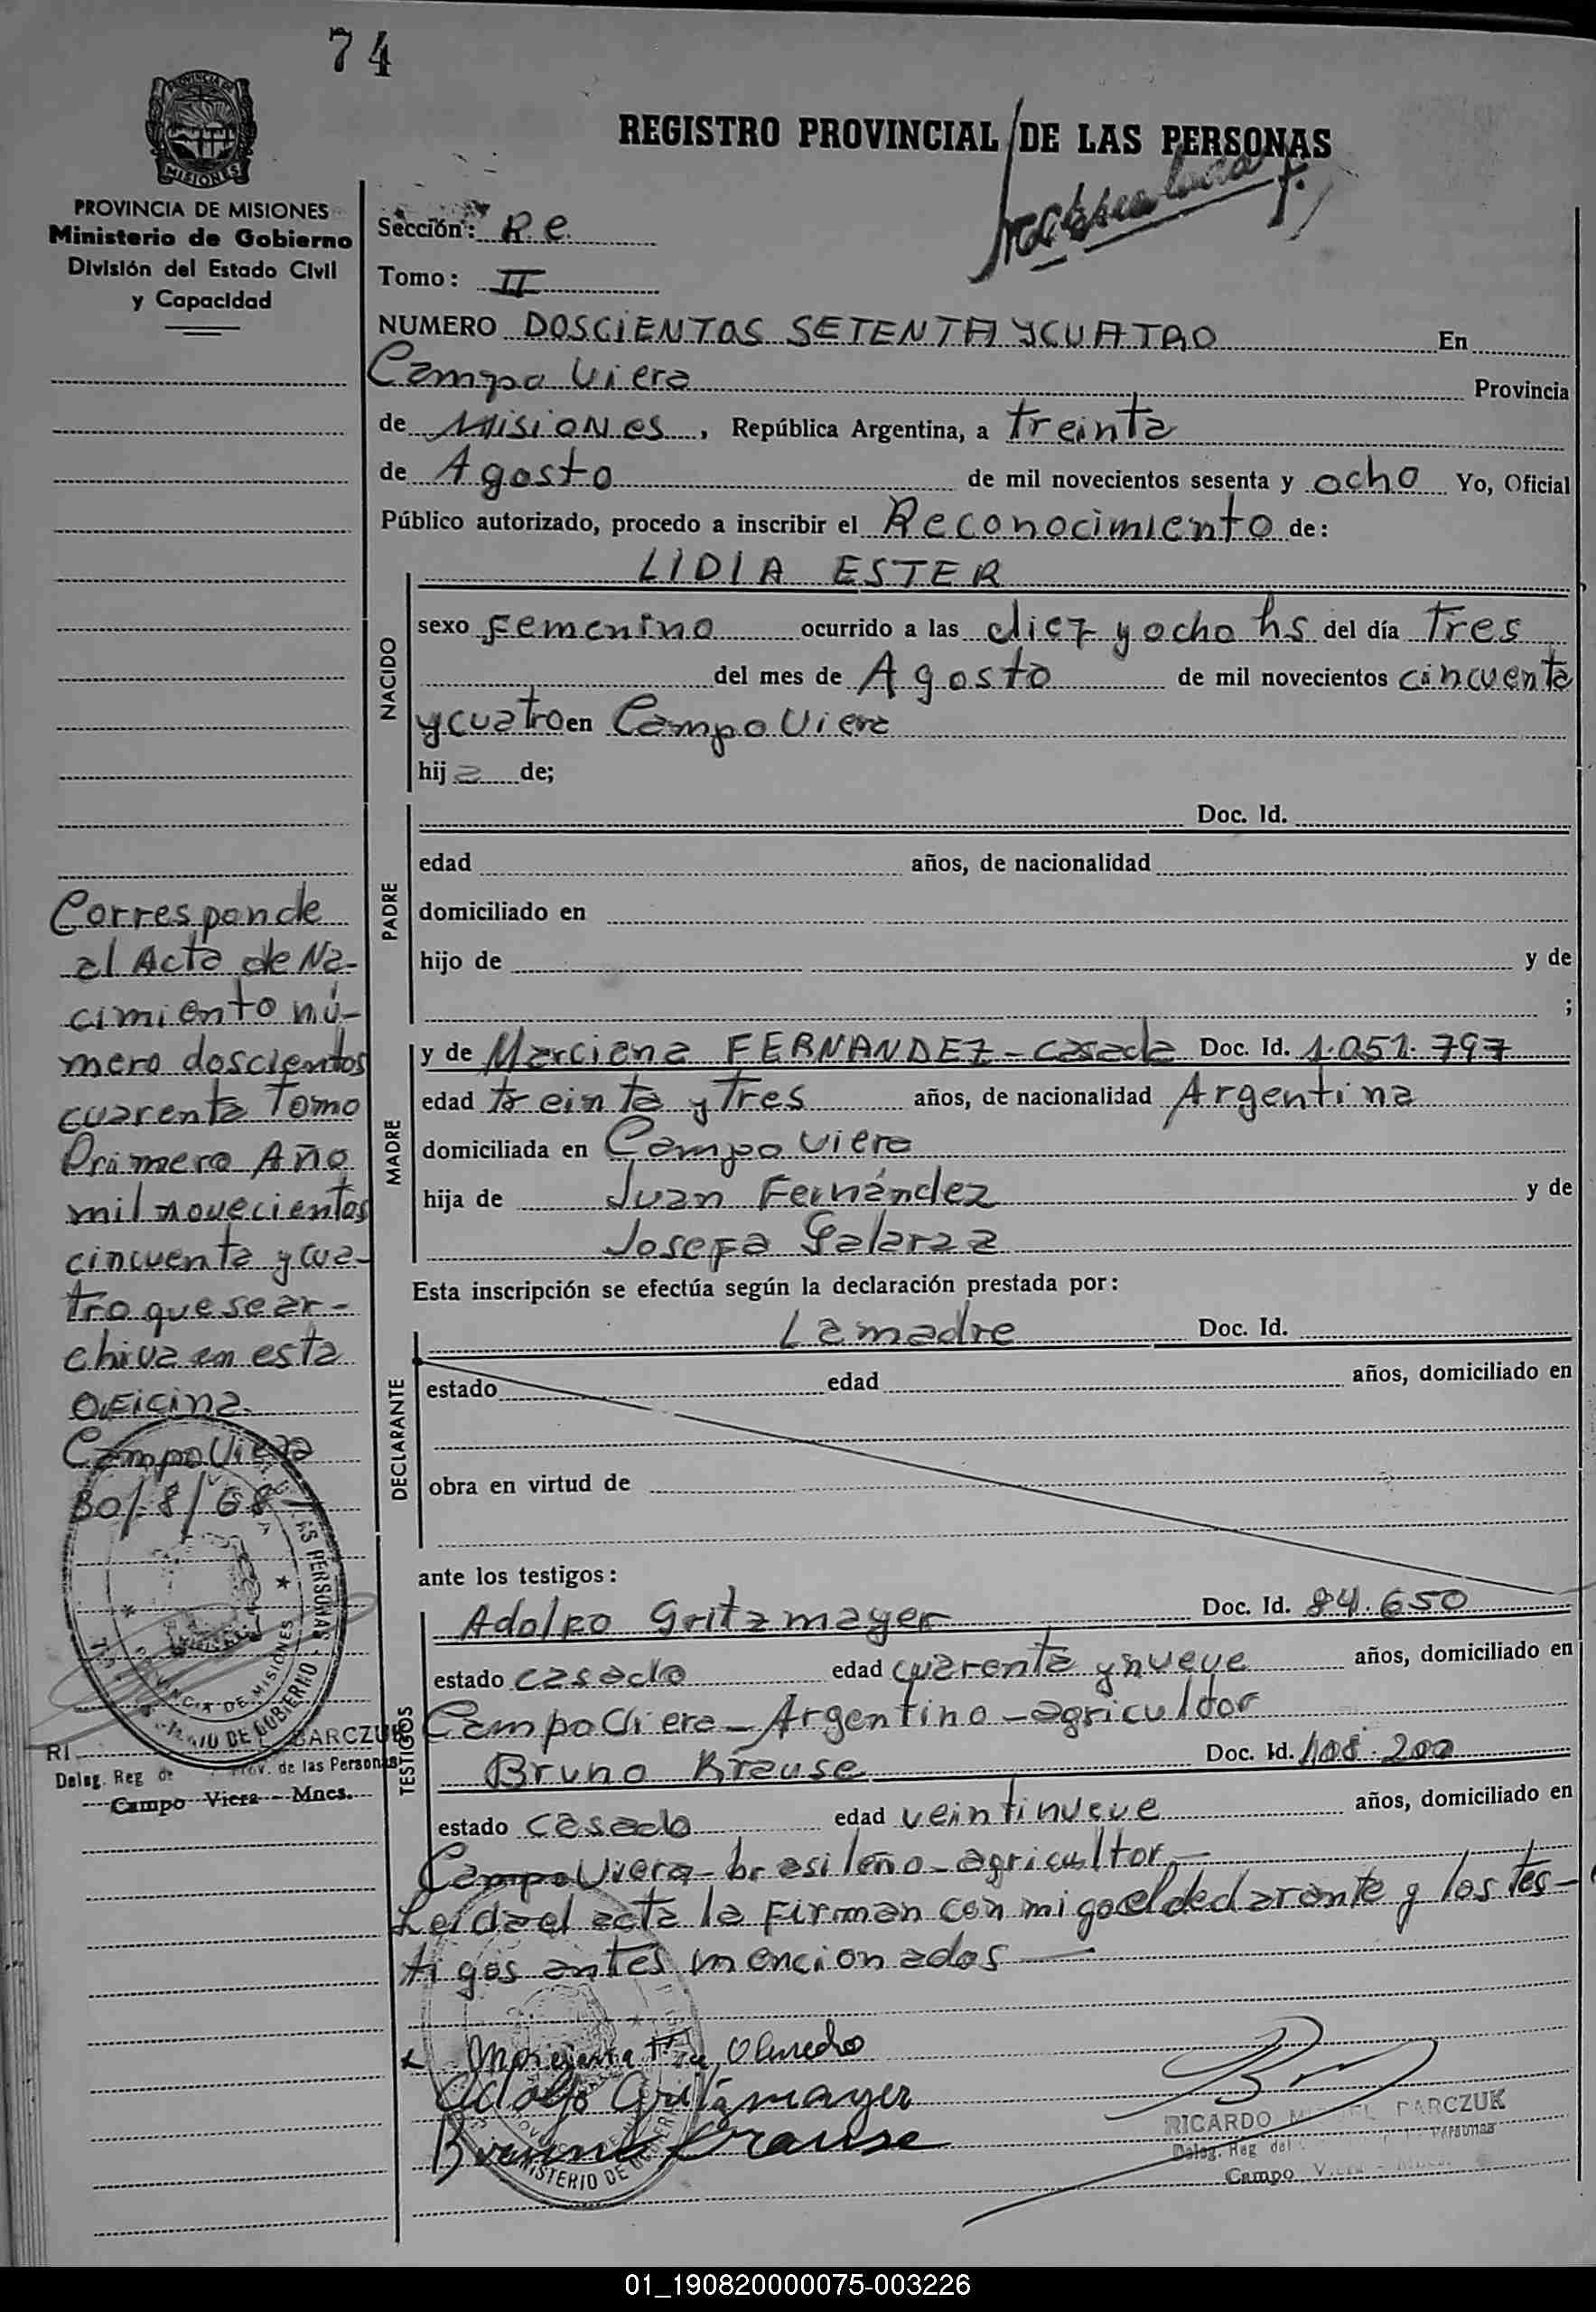 74
MISIONES
PROVINCIA DE MISIONES
Ministerio de Gobierno
División del Estado Civil
y Capacidad
REGISTRO PROVINCIAL DE LAS PERSONAS
Sección: R.e.
Tomo: II
NUMERO DOSCIENTOS SETENTA Y CUATRO En
Campo Viera Provincia
de Misiones, República Argentina, a treinta
de Agosto de mil novecientos sesenta y ocho Yo, Oficial
Público autorizado, procedo a inscribir el Reconocimiento de:
LIDIA ESTER
NACIDO
sexo Femenino ocurrido a las diez y ocho hs del día Tres
del mes de Agosto de mil novecientos cincuenta
y cuatro en Campo Viera
hija de;
PADRE
Doc. Id.
edad años, de nacionalidad
domiciliado en
hijo de y de
;
MADRE
y de Marciana FERNANDEZ - casada Doc. Id. 1.051.797
edad treinta y Tres años, de nacionalidad Argentina
domiciliada en Campo Viera
hija de Juan Fernández y de
Josefa Galarza
Esta inscripción se efectúa según la declaración prestada por:
DECLARANTE
La madre Doc. Id.
estado edad años, domiciliado en
obra en virtud de
ante los testigos:
TESTIGOS
Adolfo Gritzmayer Doc. Id. 84.650
estado casado edad cuarenta y nueve años, domiciliado en
Campo Viera - Argentino - agricultor
Bruno Krause Doc. Id. 108.200
estado casado edad veintinueve años, domiciliado en
Campo Viera - brasileño - agricultor
Leída el acta la firman conmigo el declarante y los tes-
tigos antes mencionados
Adolfo Gritzmayer
Bruno Krause
RICARDO BARCZUK
Deleg. Reg. del Personas
Campo Viera - Mnes.
Corresponde
al Acta de Na-
cimiento nú-
mero doscientos
cuarenta Tomo
Primero Año
mil novecientos
cincuenta y cua-
tro que se ar-
chiva en esta
Oficina
Campo Viera
30/8/68
LAS PERSONAS
PROVINCIA DE MISIONES
MINISTERIO DE GOBIERNO
BARCZUK
Deleg. Reg. de Prov. de las Personas
Campo Viera - Mnes.
MINISTERIO DE GOBIERNO
01_190820000075-003226